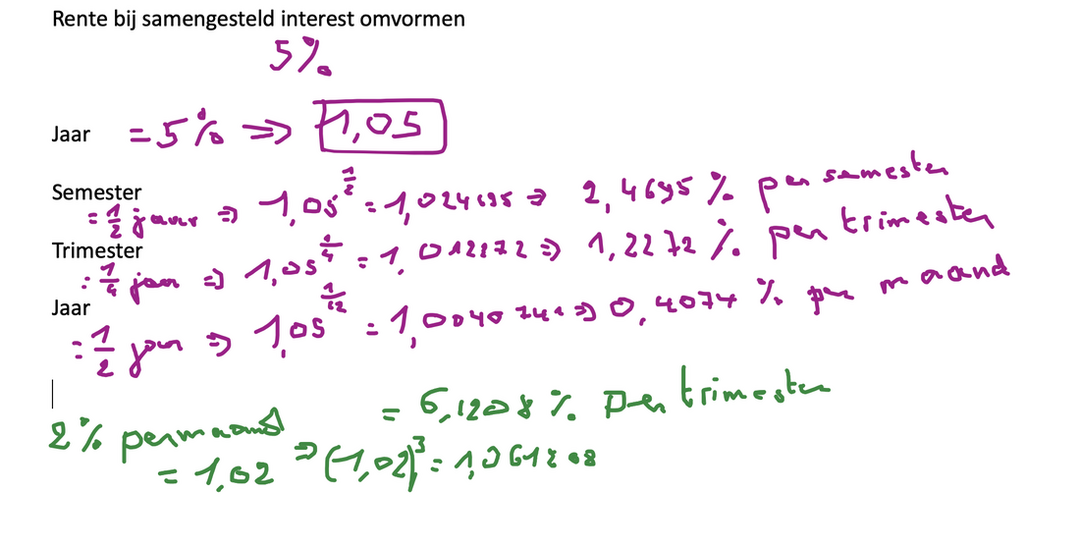 Rente bij samengesteld interest omvormen
5%
Jaar = 5% => 1,05
Semester
= 1/2 jaar => 1,05^1/2 = 1,024695 => 2,4695 % per semester
Trimester
= 1/4 jaar => 1,05^1/4 = 1,012272 => 1,2272 % per trimester
Jaar
= 1/2 jaar => 1,05^1/12 = 1,0040741 => 0,4074 % per maand
= 6,1208 % per trimester
2% per maand
= 1,02 => (1,02)^3 = 1,061208